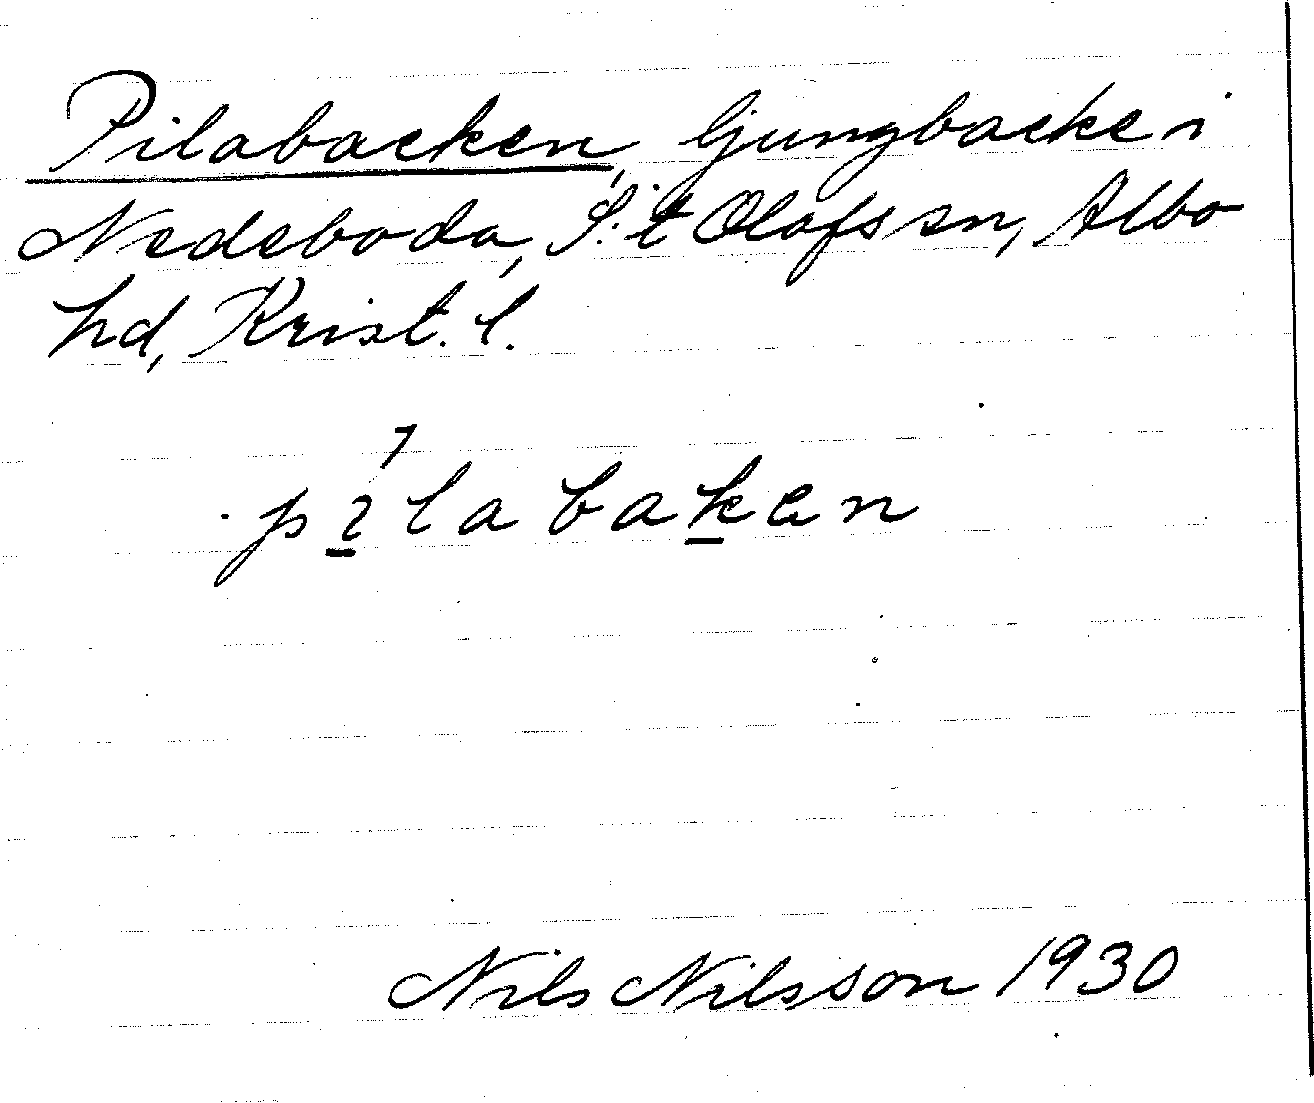 Pilabacken, ljungbacke i
Nedeboda, S:t Olofs sn, Albo
hd, Krist. l.
pılabaken
Nils Nilsson 1930